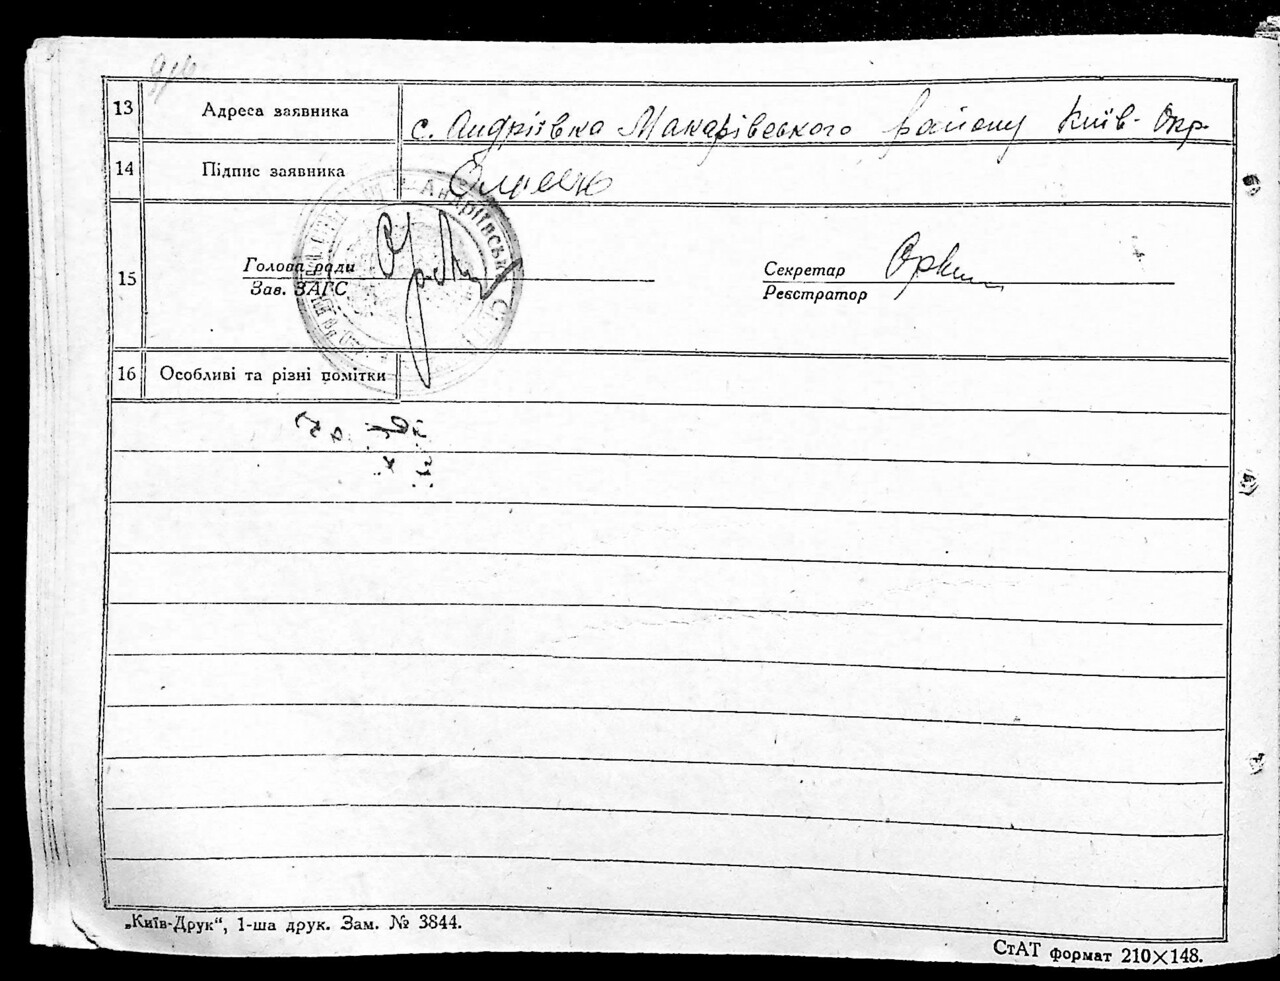 13 Адреса заявника с. Андріївка Макарівського району Київ. Окр.
14 Підпис заявника
Андріївськ
15 Голова ради
Зав. ЗАГС
Секретар
Реєстратор
16 Особливі та різні помітки
„Київ-Друк“, 1-ша друк. Зам. № 3844.
СтАТ формат 210×148.